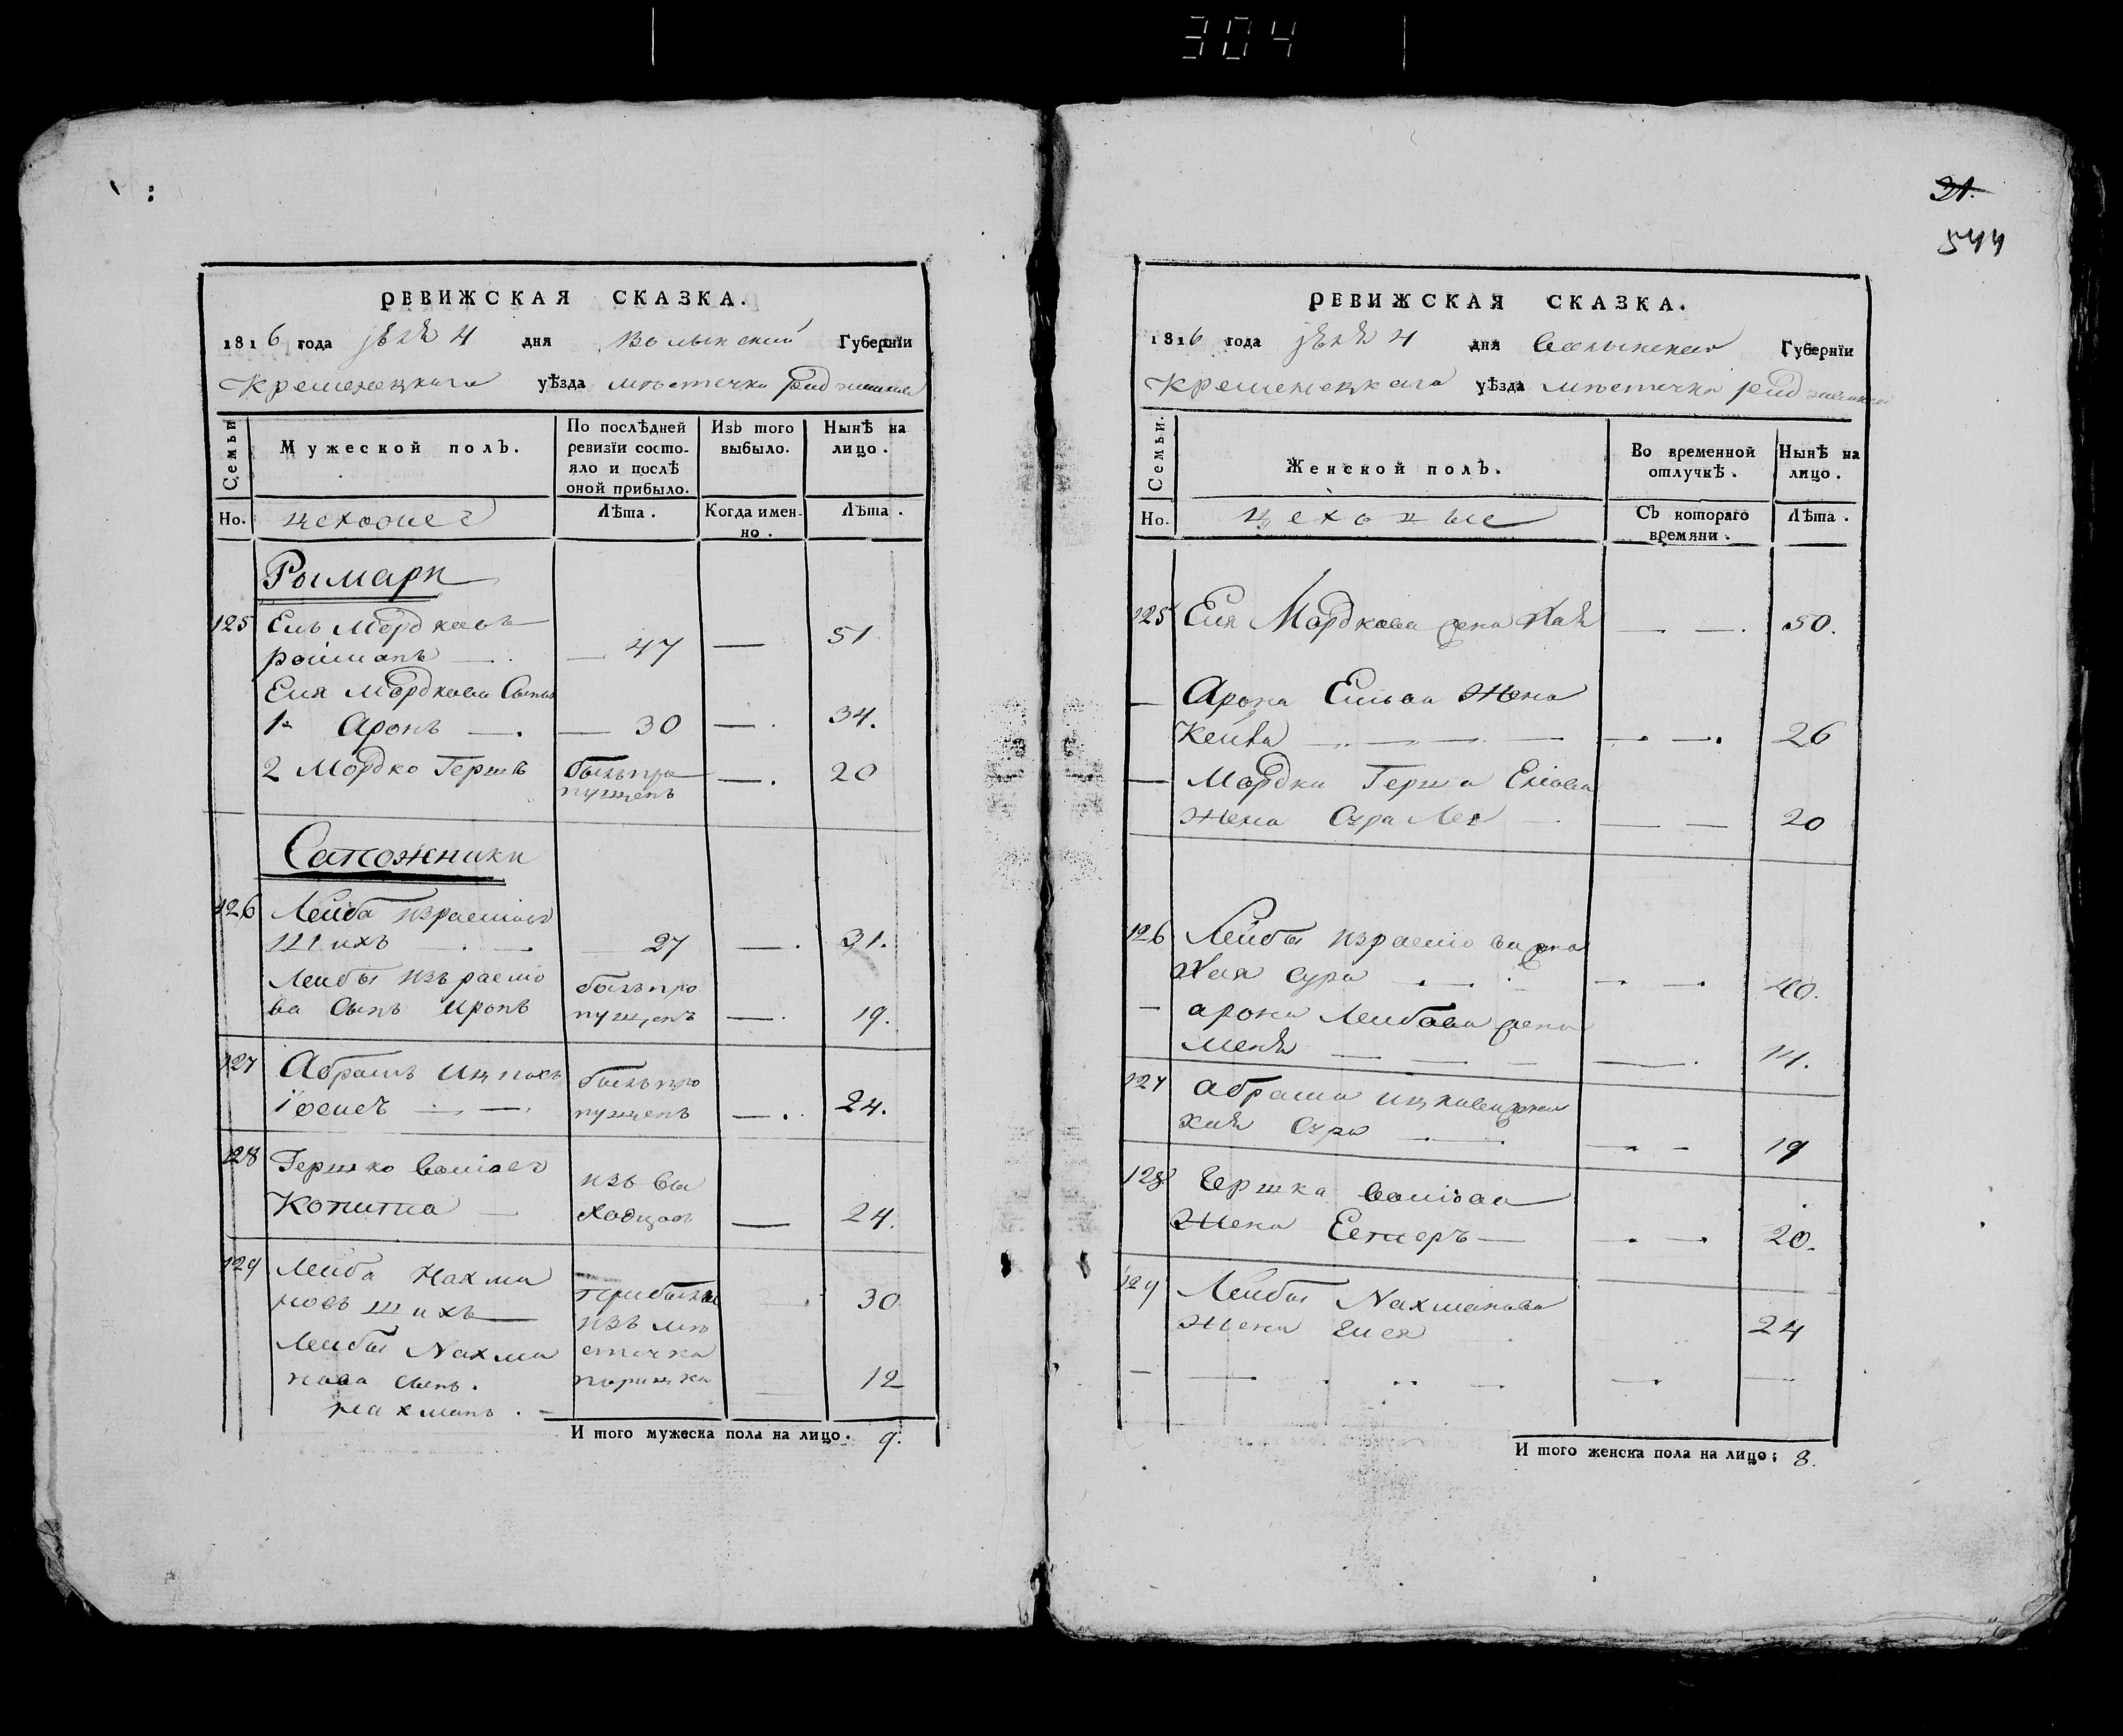 304
21.
544
РЕВИЖСКАЯ СКАЗКА.
1816 года 4 дня Волынской Губернїи
Кременецкаго уѣзда мѣстечка
Семьи
Мужеской полъ.
По послѣдней ревизїи состояло и послѣ оной прибыло.
Изъ того выбыло.
Нынѣ на лицо.
Но.
Лѣта.
Когда именно.
Лѣта.
Рымари
125 Ель Мордковъ
— 47 — 51
Еля Мордкова Сынъ
1й Аронъ — 30 — 34.
2 Мордко Гершъ былъ пропущенъ — 20
Сапожники
126 Лейба Израелiовъ
Шихъ — 27 — 31.
Лейбы Израелiо
ва сынъ Аронъ былъ пропущенъ — 19.
127 Абрамъ Ицковъ былъ про
пущенъ — 24.
128 Гершко изъ вы
Копита — ходцовъ — 24.
129 Лейба Нахма
новъ Шихъ прибылъ — 30
изъ мѣ
Лейбы Нахма стечка
нова сынъ. — 12
Нахманъ.
И того мужеска пола на лицо. 9.
РЕВИЖСКАЯ СКАЗКА.
1816 года 4 дня Волынской Губернїи
Кременецкаго уѣзда мѣстечка
Семьи.
Женской полъ.
Во временной отлучкѣ.
Нынѣ на лицо.
Но.
цеховые
Съ котораго времяни.
Лѣта.
125 Еля Мордкова жена Хая — — 50.
— Арона Ельова Жена
Кейла — — 26
— Мордки Герша Ельова
жена Сура Лея — — 20
126 Лейбы Израелiова жена
Хая Сура — — 40.
— Арона Лейбова жена
— 14.
127 Абрама Ицкова жена
Хая Сура — — 19
128 Гершка
Жена Естеръ — — 20.
129 Лейбы Нахманова
жена 24
И того женска пола на лицо: 8.